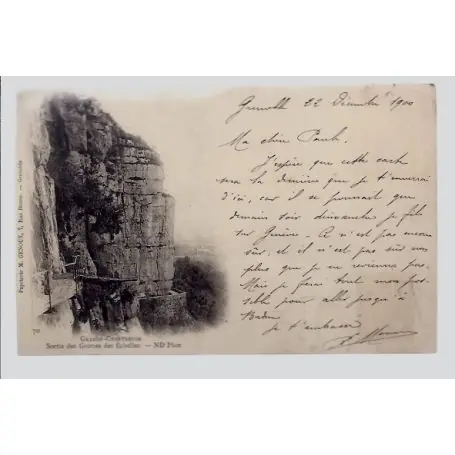 Papeterie X. GENOUX, 7, Rue Bressieux — Grenoble
Grenoble 22 Décembre 1900
Ma chère Paule
J'espère que cette carte
sera la dernière que je t'enverrai
d'ici, car il se pourrait que
demain soir dimanche je file
sur Genève. Ce n'est pas encore
sûr, et il n'est pas sûr non
plus que je ne revienne pas.
Mais je ferai tout mon pos-
sible pour aller jusqu'à
Baden
je t'embrasse
70
GRANDE-CHARTREUSE
Sortie des Grottes des Echelles. — ND Phot